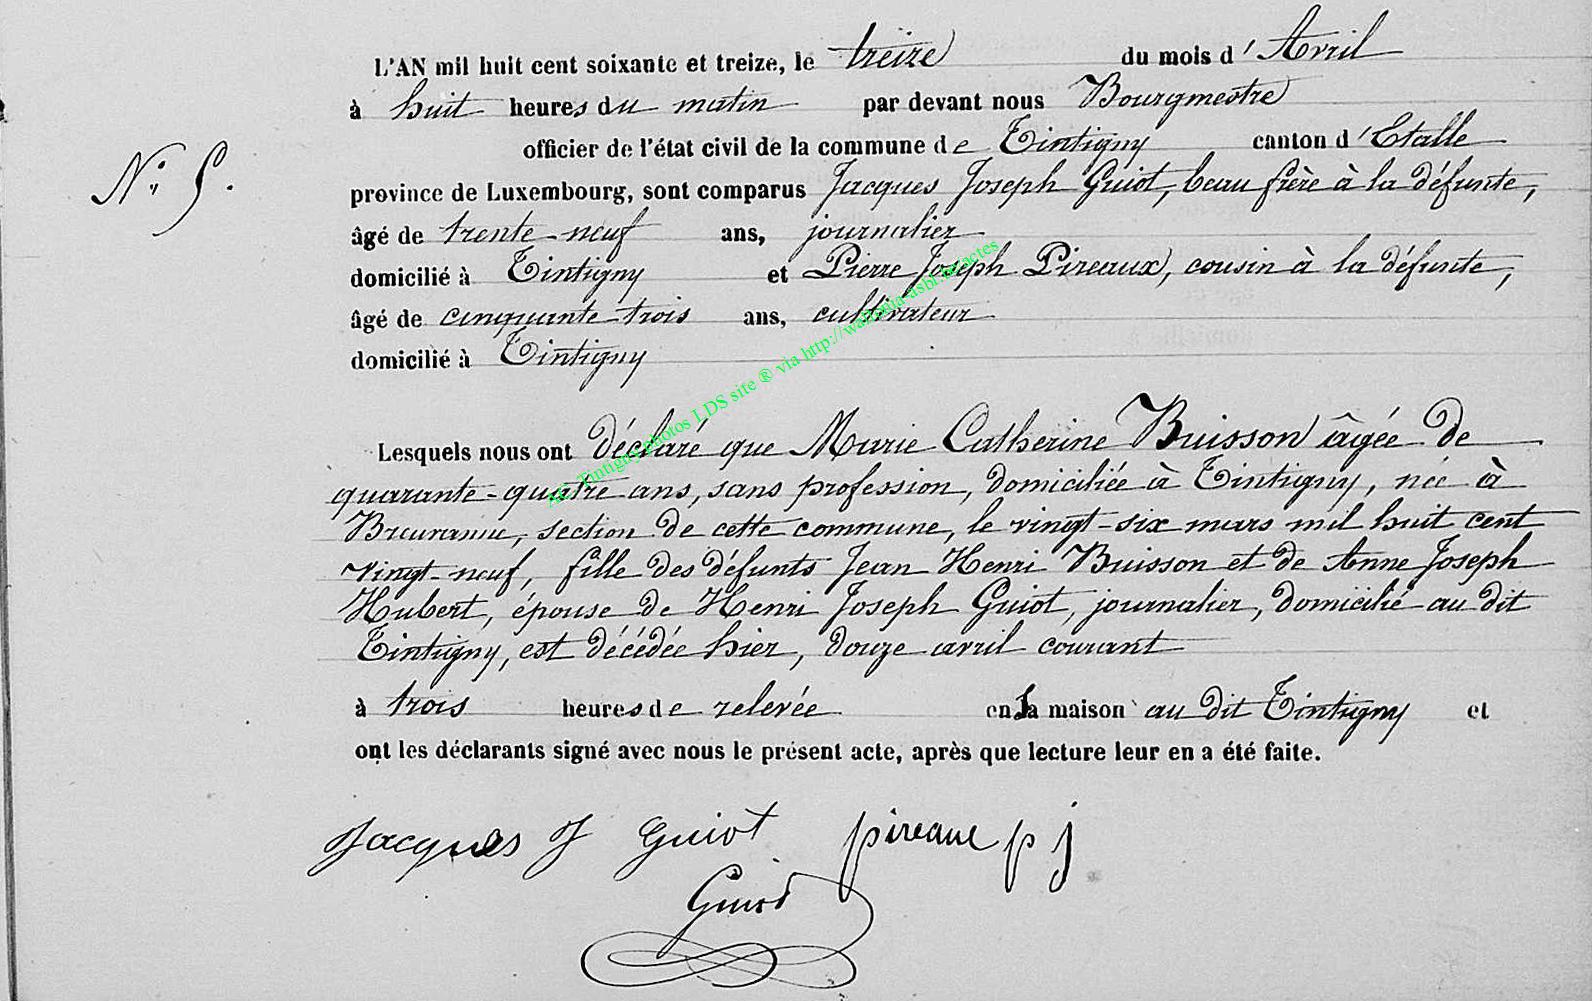 L'AN mil huit cent soixante et treize, le treize du mois d'Avril
à huit heures du matin par devant nous Bourgmestre
officier de l'état civil de la commune de Tintigny canton d'Etalle
N° 5.
province de Luxembourg, sont comparus Jacques Joseph Guiot, beau frère à la défunte,
âgé de trente-neuf ans, journalier
domicilié à Tintigny et Pierre Joseph Pireaux, cousin à la défunte,
âgé de cinquante-trois ans, cultivateur
domicilié à Tintigny
AC Tintigny photos LDS site ® via http://wallonia-asbl.be/actes
Lesquels nous ont déclaré que Marie Catherine Buisson âgée de
quarante-quatre ans, sans profession, domiciliée à Tintigny, née à
Breuvanne, section de cette commune, le vingt-six mars mil huit cent
vingt-neuf, fille des défunts Jean Henri Buisson et de Anne Joseph
Hubert, épouse de Henri Joseph Guiot, journalier, domicilié au dit
Tintigny, est décédée hier, douze avril courant
à trois heures de relevée en la maison au dit Tintigny et
ont les déclarants signé avec nous le présent acte, après que lecture leur en a été faite.
Jacques J Guiot pireaux p j
Guiot